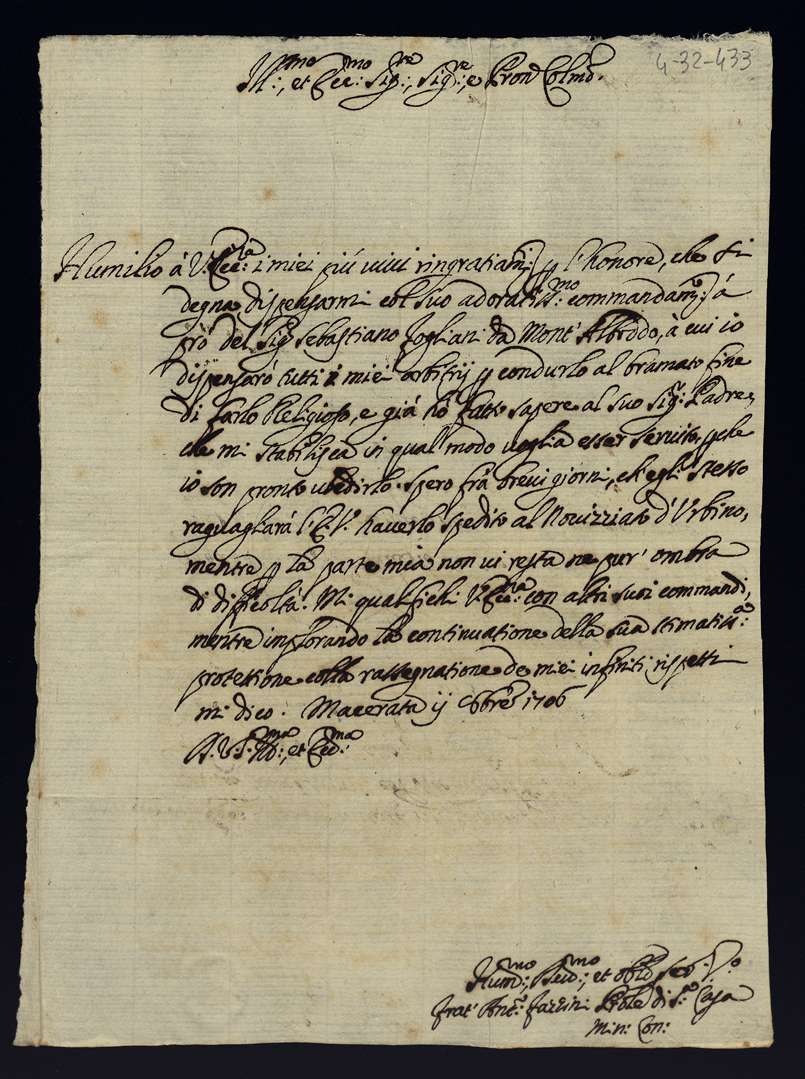 4-32-433
Ill:mo, et Ecc:mo Sig:re, Sig:re, e Pron Colmo.
Humilio à V. Ecc:za i miei più vivi ringratiam:ti p l'honore, che si
degna dispensarmi col suo adoratiss:mo commandam:to à
prò del Sig:r Sebastiano Fogliani da Mont' Alboddo, à cui io
dispensarò tutti i miei arbitrij p condurlo al bramato fine
di farlo Religioso, e già hò fatto sapere al suo Sig:r Padre,
che mi stabilisca in qual modo voglia esser servito, pche
io son pronto ubedirlo. Spero frà brevi giorni, ch'egli stesso
raguagliarà l'E. V. haverlo spedito al Novizziato d'Urbino,
mentre p la parte mia non vi resta ne pur' ombra
di difficoltà. Mi qualifichi V. Ecc:za con altri suoi commandi,
mentre implorando la continuatione della sua stimatiss:a
protettione colla rassegnatione de miei infiniti rispetti
mi dico. Macerata 1706
D. V. Ill:ma, et Ecc:ma
Hum:mo, Dev:mo, et obl:o Ser:
Frat' Ant:o Min: Con: